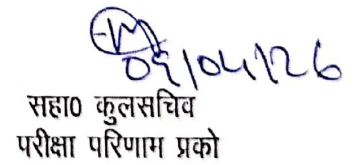 09/04/26
सहा० कुलसचिव
परीक्षा परिणाम प्रको